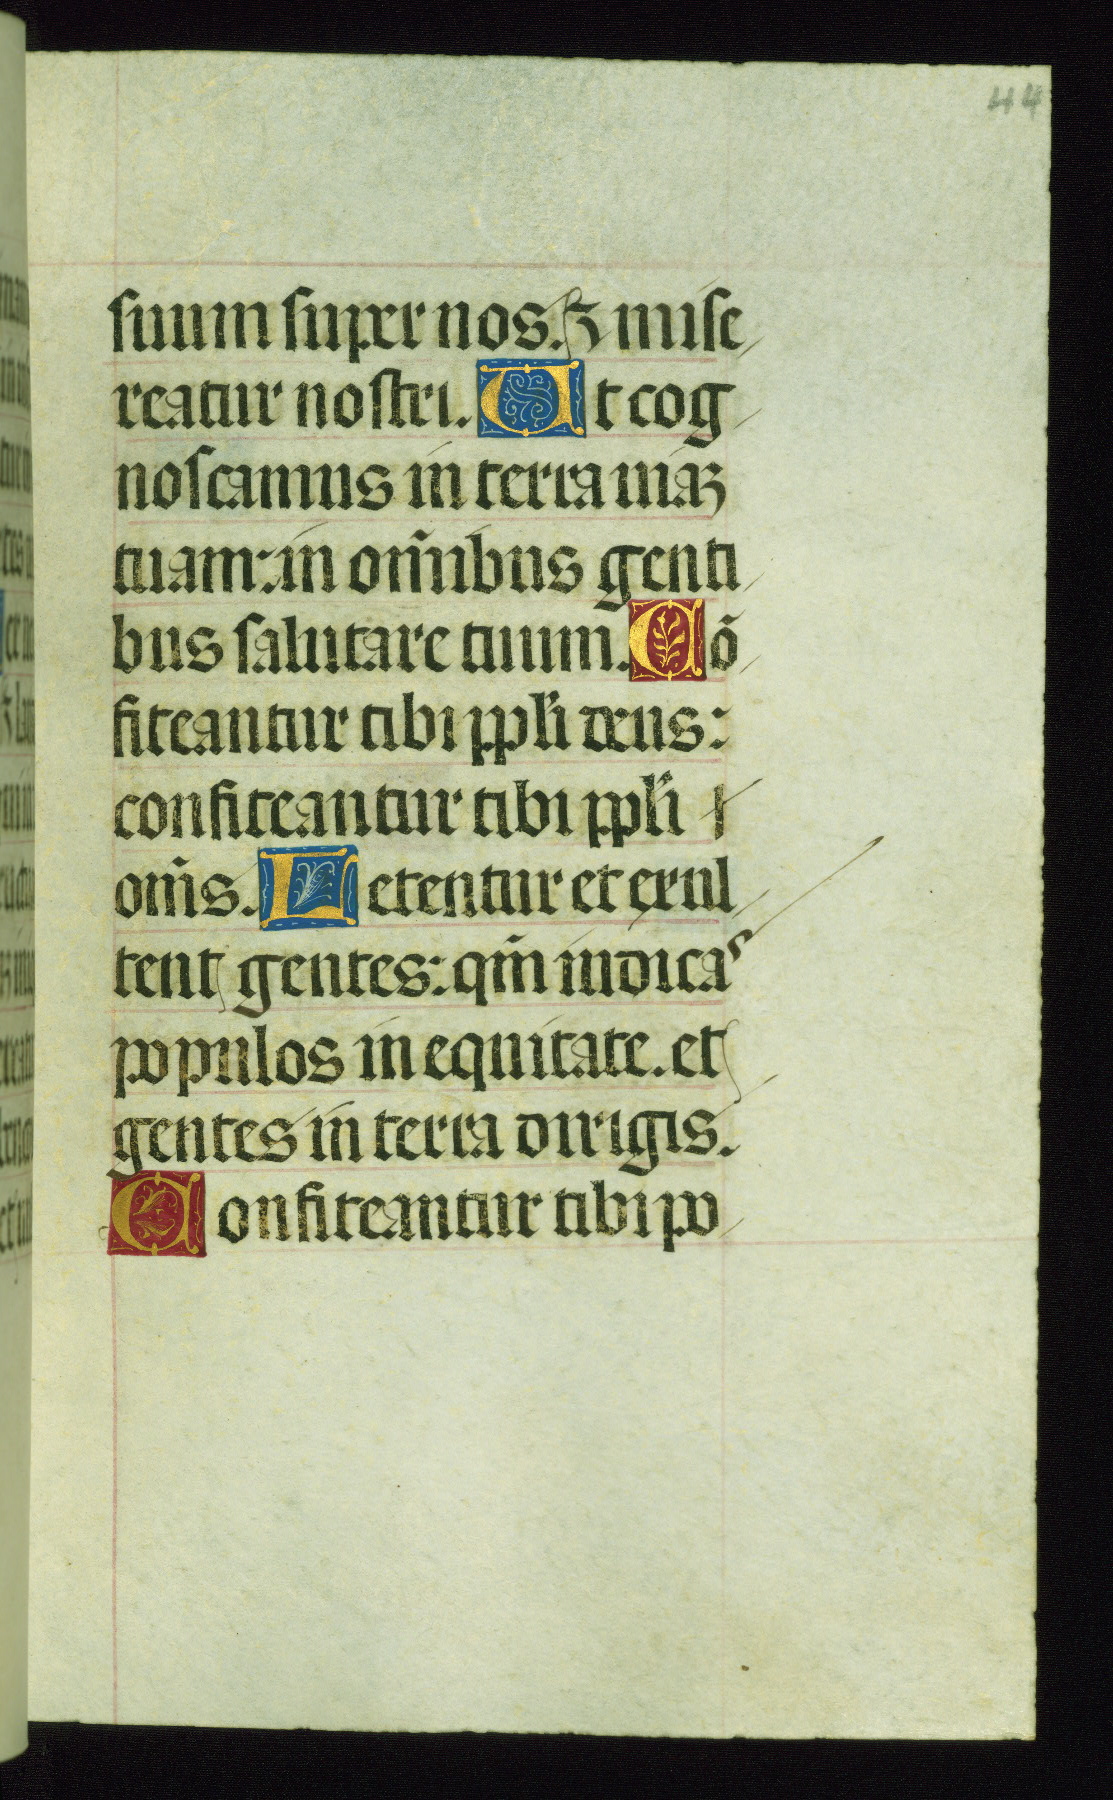 44
suum super nos. ⁊ mise
reatur nostri. Ut cog
noscamus in terra uiaꝫ
tuam: in om̄ibus genti
bus salutare tuum. Cō
fiteantur tibi ppl̄i deus:
confiteantur tibi ppl̄i
om̄s. Letentur et exul
tent gentes: qm̄ iudicas
populos in equitate. et
gentes in terra dirigis.
Confiteantur tibi po